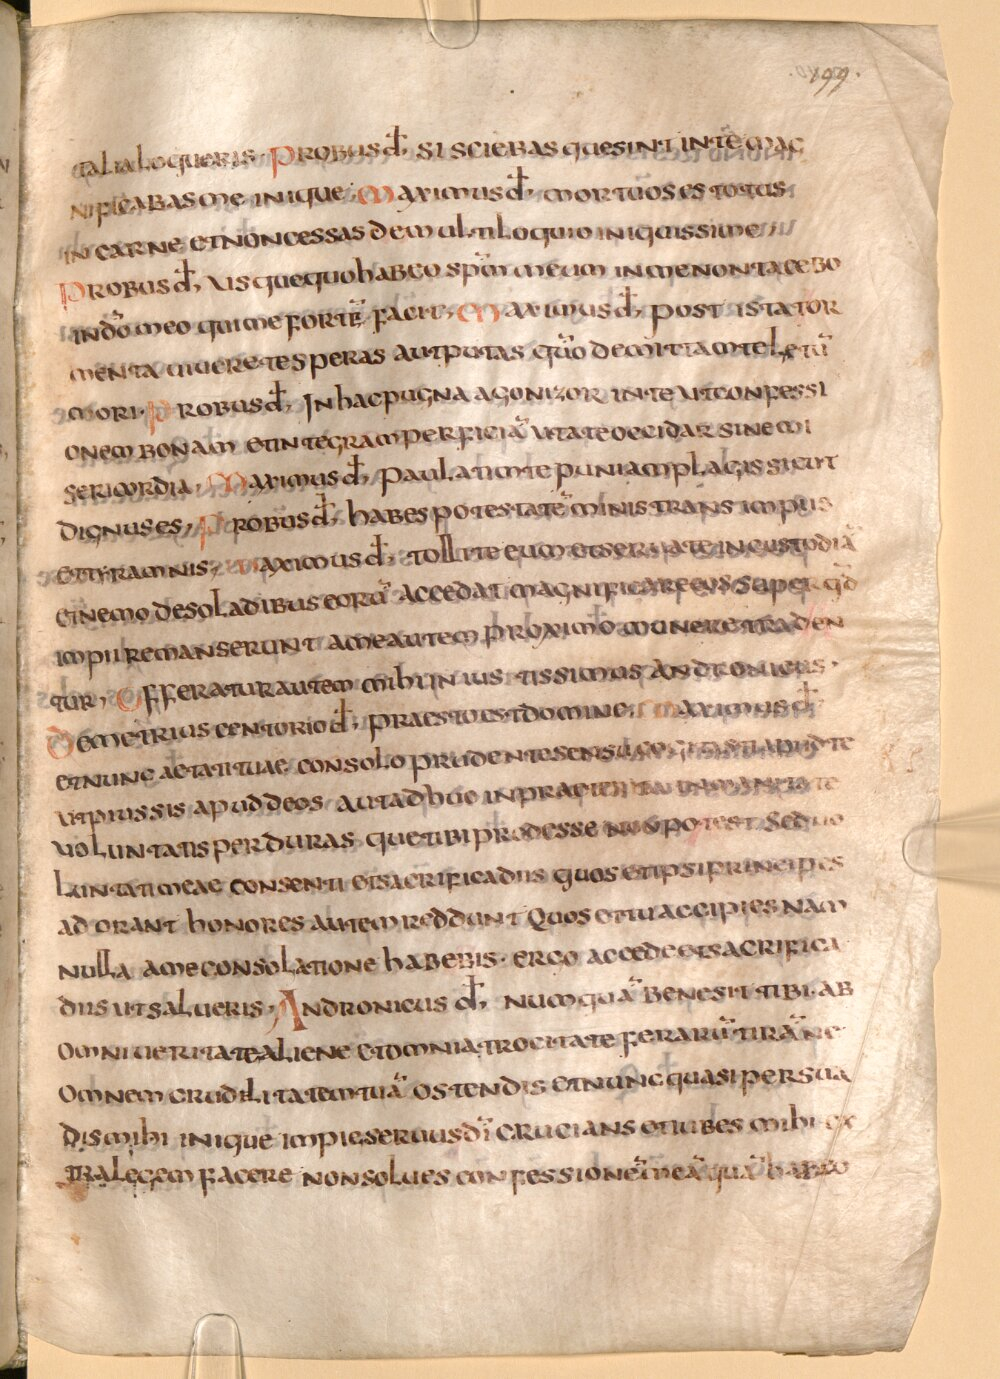 199.
talia loqueris. Probus đ, si sciebas que sint in te mag
nificabas me inique. Maximus đ, mortuos es totus
in carne et non cessas de multiloquio iniquissime
Probus đ, usquequo habeo sp̄m meum in me non tacebo
in dō meo qui me fortē facit. Maximus đ, post ista tor
menta uiuere te speras aut putas quō demittam te letū
mori. Probus đ, In hac pugna agonizor in te ut confessi
onem bonam et integram perficiā ut a te occidar sine mi
sericordia. Maximus đ, paulatim te puniam plagis sicut
dignus es, Probus đ, habes potestatē ministrans impius
et tyramnis, Maximus đ, tollite eum et seruate in custodiā
et nemo de soladibus eorū accedat magnificare eos super qđ
impii remanserunt a me autem proximo munere traden
tur, Offeratur autem mihi in ius tissimus Andronicus.
Demetrius centorio đ, praesto est domine, Maximus đ
et nunc aetati tuae consolo prudentes ensu cogitasti apud te
ut piussis apud deos aut adhuc in
uoluntatis perduras que tibi prodesse non potest. Sed uo
luntati meae consenti et sacrifica diis quos et ipsi principes
adorant honores autem reddunt Quos et tu accipies nam
nulla a me consolatione habebis. ergo accede et sacrifica
diis ut salueris, Andronicus đ, numquā bene sit tibi ab
omni ueritate aliene et omnia trocitate ferarū tirāne
omnem crudilitatem tuā ostendis et nunc quasi persua
dis mihi inique impie seruus dī crucians et iubes mihi ex
tra legem facere non solues confessionē meā quā habeo